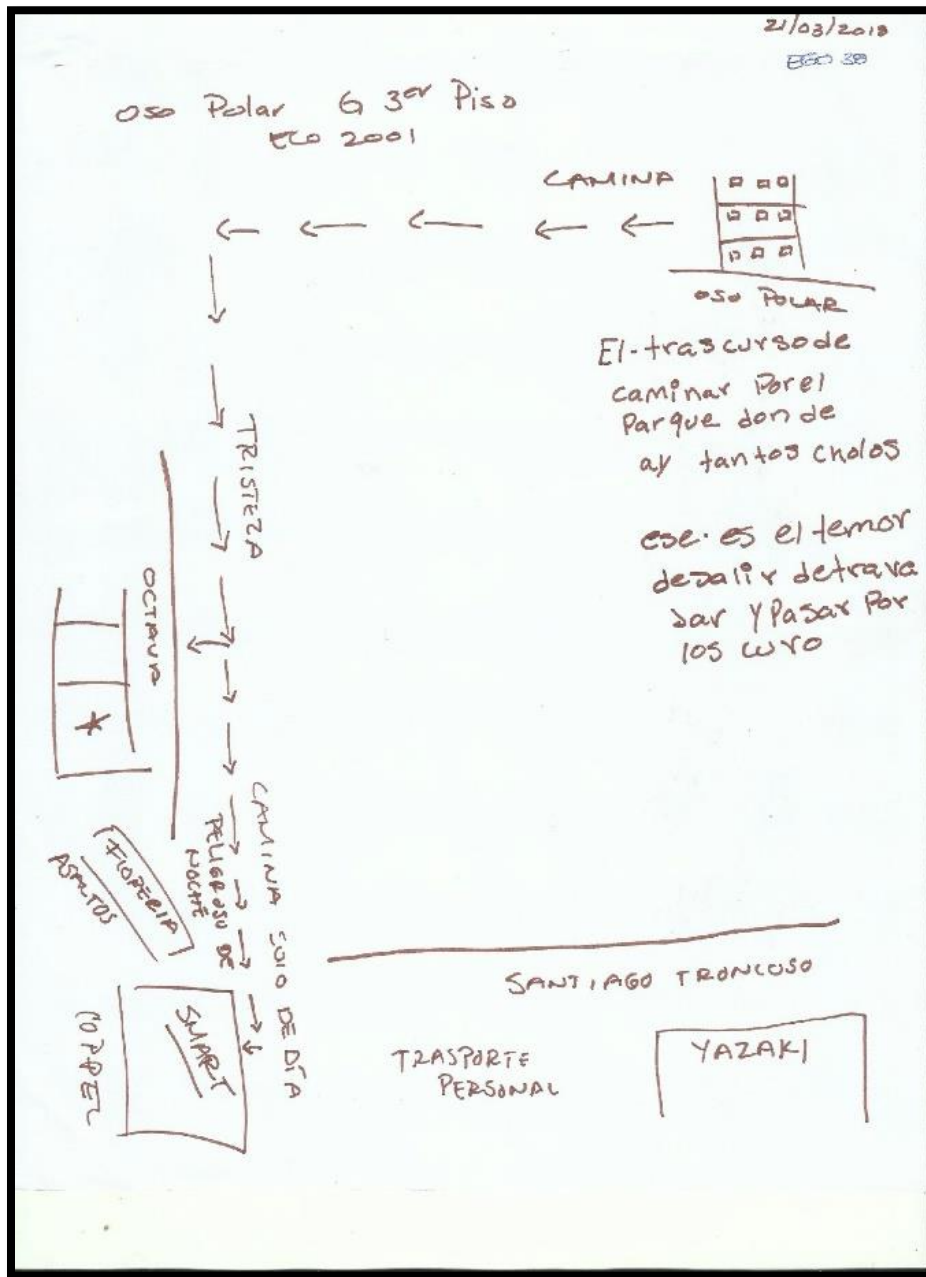 21/03/2018
EGO 38
OSO Polar G 3er Piso
ECO 2001
CAMINA
OSO POLAR
El trascurso de
caminar Por el
Parque don de
ay tantos cholos
ese es el temor
desalir detrava
Jar Y Pasar Por
los curo
TRISTEZA
OCTAVA
CAMINA SOlO DE DÍA
PELIGROSO DE
NOCHE
FlORERIA
ASALTOS
SMART
COPPEL
SANTIAGO TRONCOSO
TRASPORTE
PERSONAL
YAZAKI